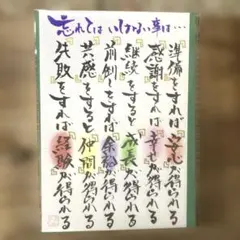 忘れてはいけない事は…
「準備」をすれば「安心」が得られる
「感謝」をすれば「幸せ」が得られる
「継続」をすると「成長」が得られる
「前倒し」をすると「余裕」が得られる
「共感」をすると「仲間」が得られる
「失敗」をすれば「経験」が得られる